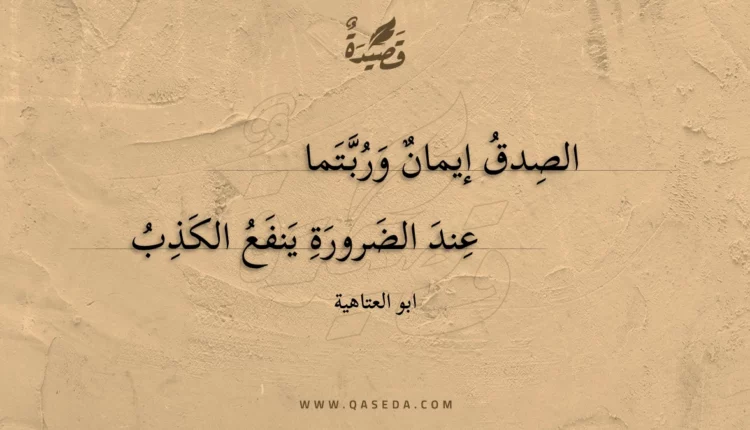 قَصِيدَةٌ
الصِدقُ إيمانٌ وَرُبَّتَما
عِندَ الضَرورَةِ يَنفَعُ الكَذِبُ
ابو العتاهية
WWW.QASEDA.COM